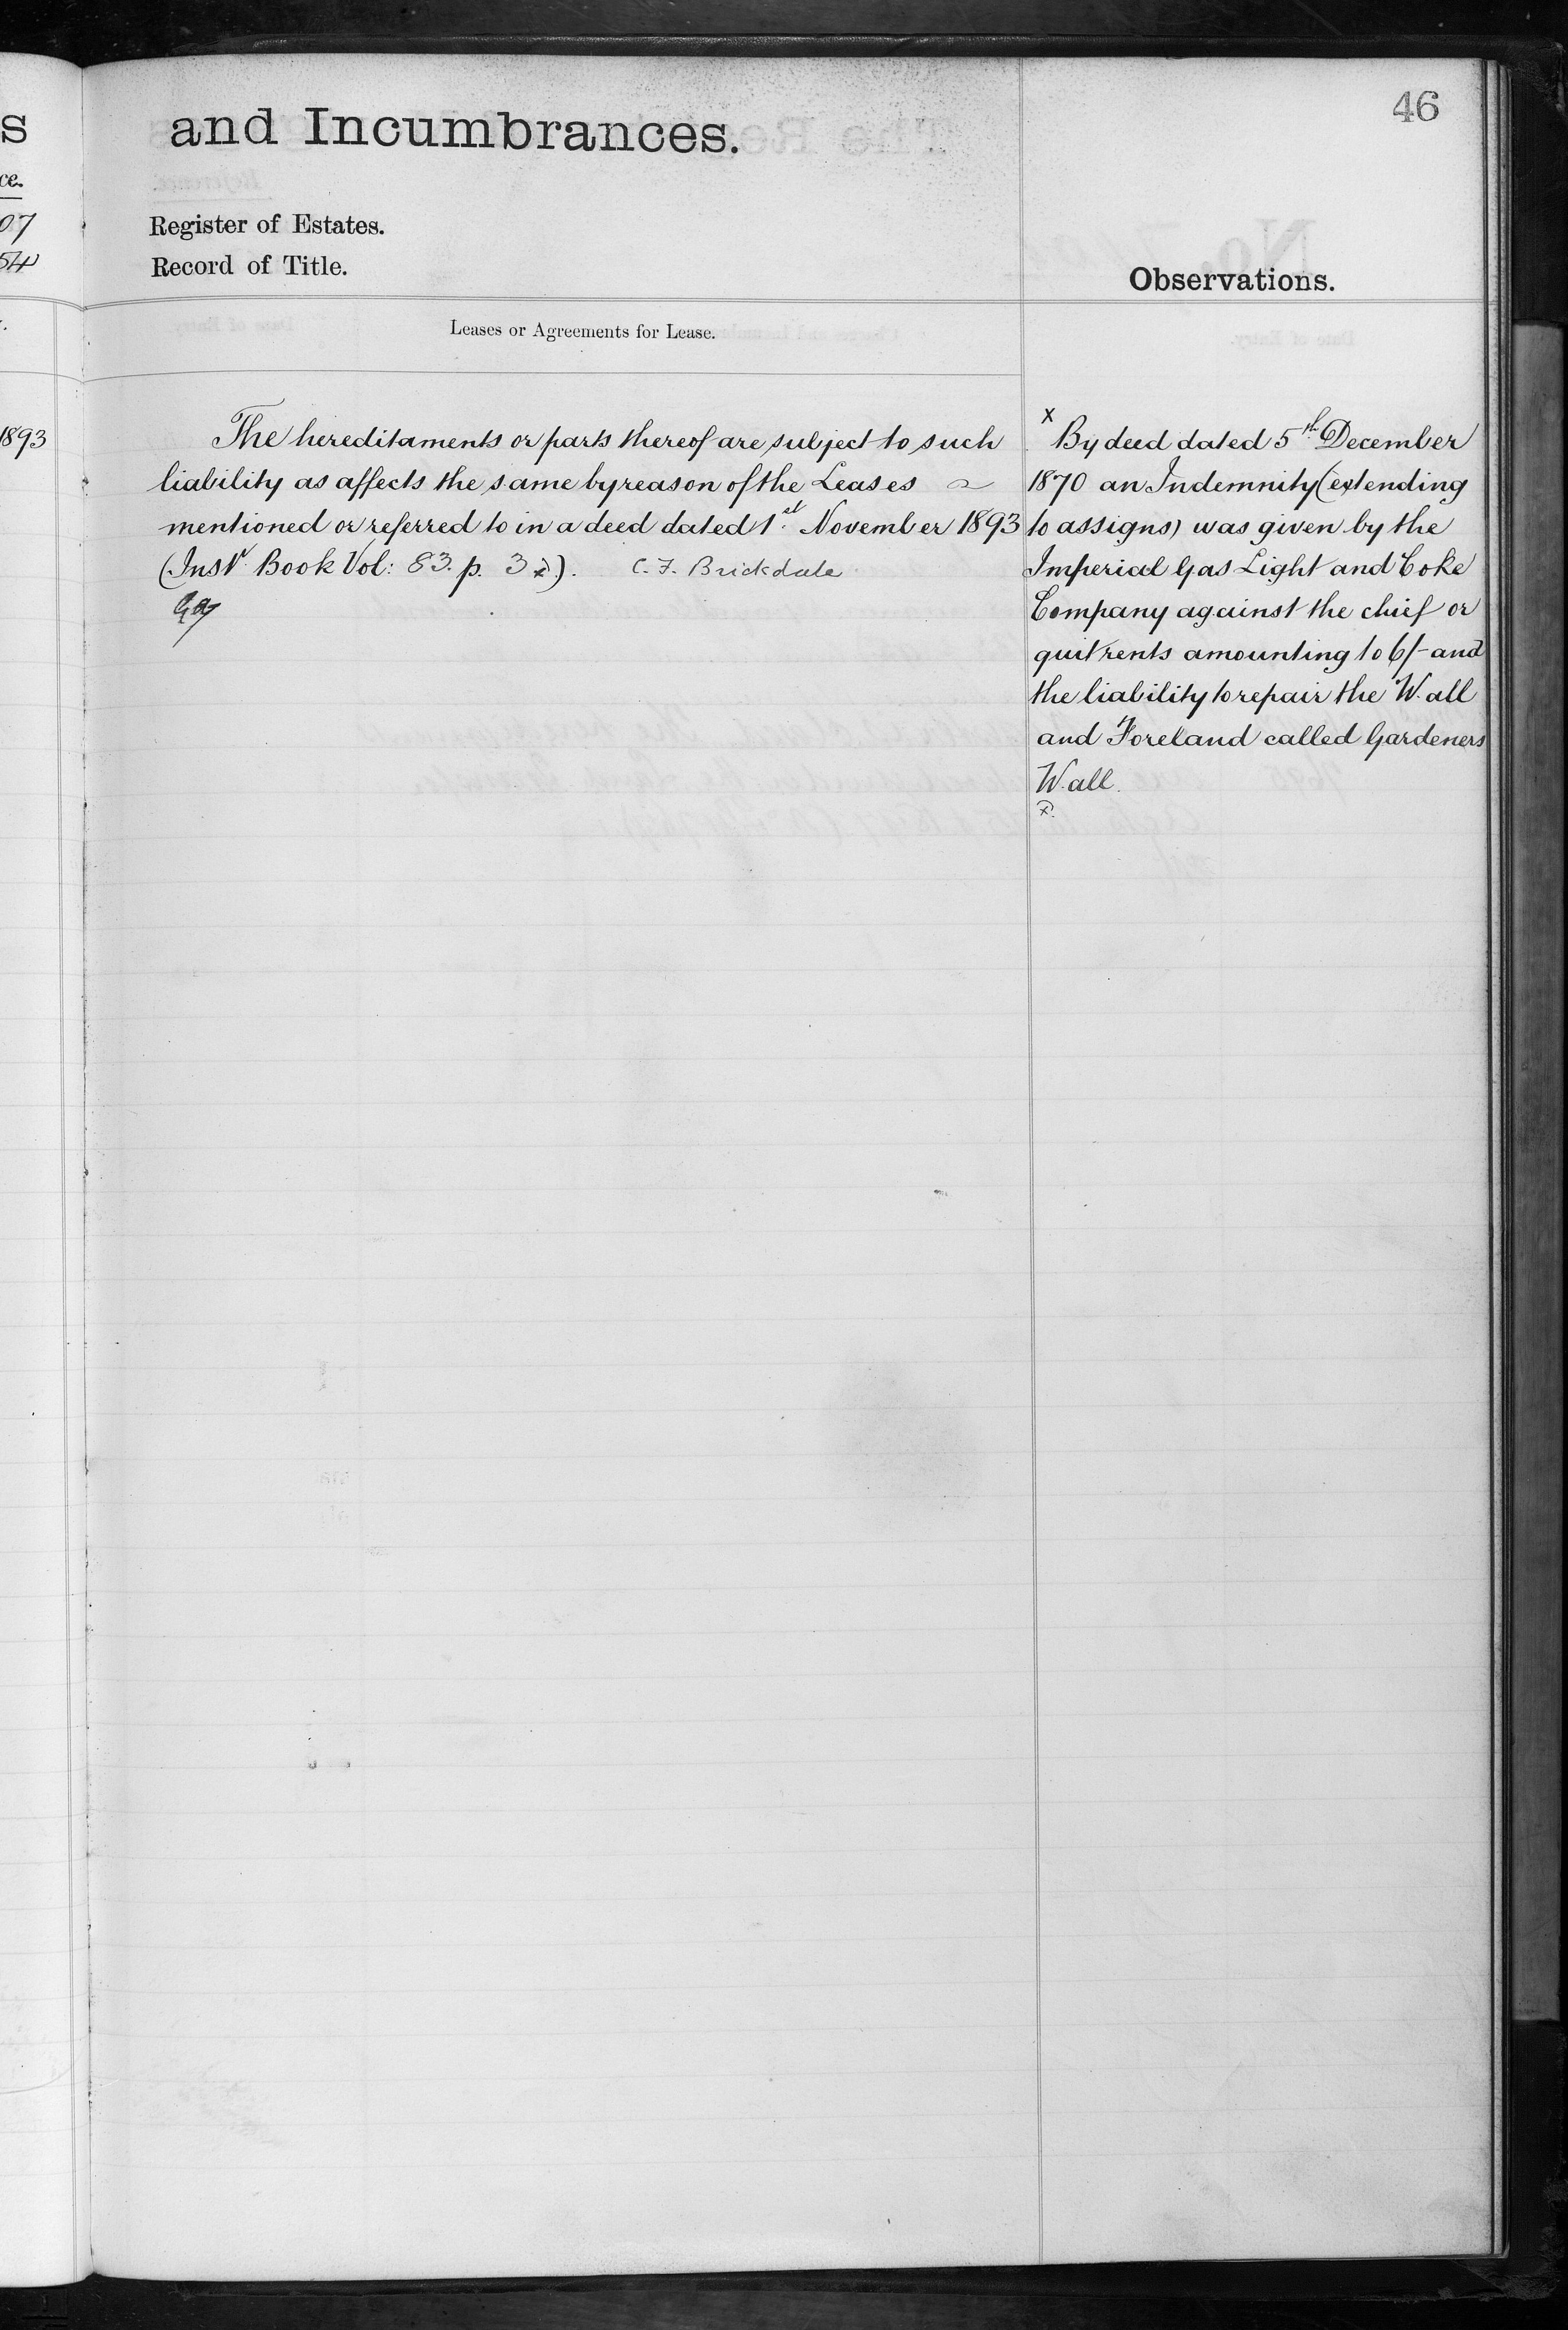 46
and Incumbrances.
Register of Estates.
Record of Title.
Observations.
Leases or Agreements for Lease.
1893
The hereditaments or parts thereof are subject to such
liability as affects the same by reason of the Leases
mentioned or referred to in a deed dated 1st November 1893
(Instr Book Vol: 83. p. 3). C. F. Brickdale
x
By deed dated 5th December
1870 an Indemnity (extending
to assigns) was given by the
Imperial Gas Light and Coke
Company against the chief or
quit rents amounting to 6/- and
the liability to repair the Wall
and Foreland called Gardeners
Wall.